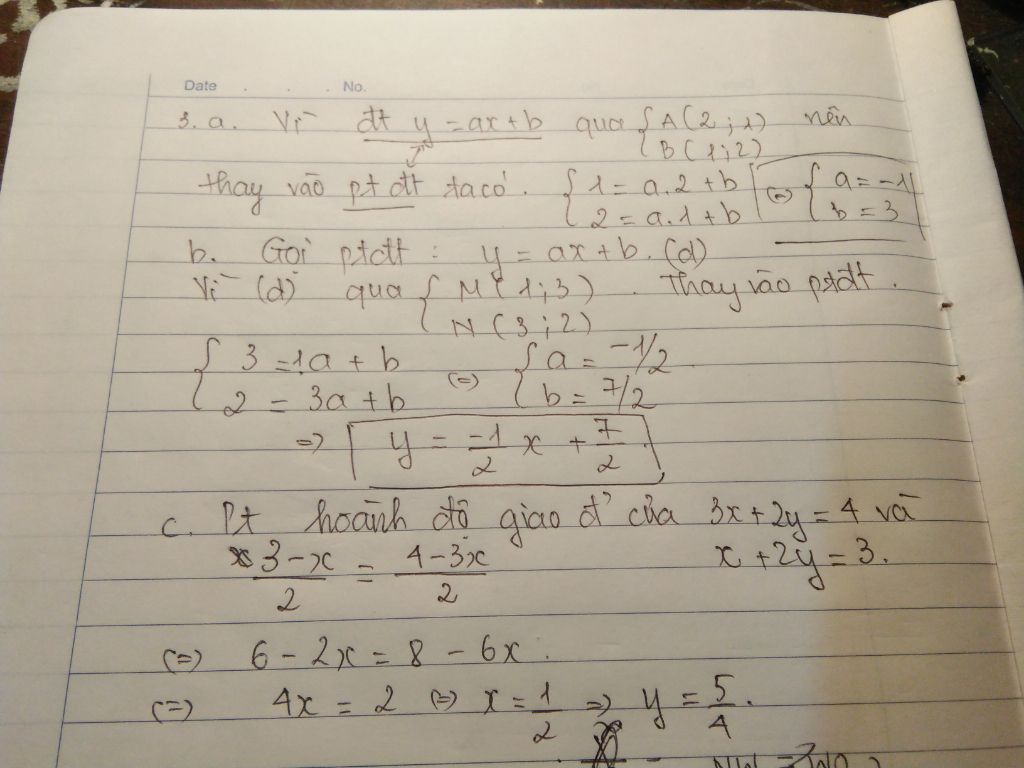 Date . . . No.
3. a. Vì đt y = ax + b qua { A(2; 1) nên
B(1; 2)
thay vào ptđt ta có. { 1 = a.2 + b (=) { a = -1
2 = a.1 + b b = 3
b. Gọi ptđt : y = ax + b. (d)
Vì (d) qua { M(1; 3) . Thay vào ptđt.
N(3; 2)
{ 3 = 1a + b (=) { a = -1/2
2 = 3a + b b = 7/2
=> y = -1/2 x + 7/2
c. Pt hoành độ giao đ' của 3x + 2y = 4 và
(3 - x)/2 = (4 - 3x)/2 x + 2y = 3.
(=) 6 - 2x = 8 - 6x.
(=) 4x = 2 (=) x = 1/2 => y = 5/4.